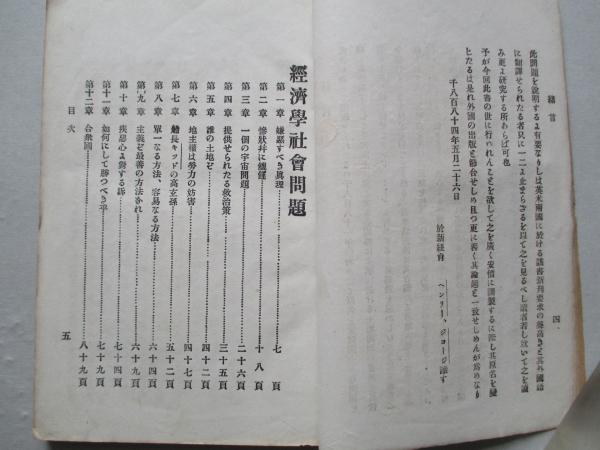 緒言
四
此問題を說明するよ有要なりしは英米兩國に於ける該書新刊要求の聲高きと其外國語
に翻譯せられたる者只に一二よ止まらざるを以て之を見るべし讀者若し就いて之を讀
み更よ硏究する所あらば可也
予が今回此書の世に行われんことを欲して之を廣く安價に調製するに際し其原名を變
へたるは是れ外國の出版と符合せしめ且つ更に善く其論題と一致せしめんが爲めなり
千八百八十四年五月二十六日
於新紐育
ヘンリー、ジョージ識す
經濟學社會問題
第一章 嫌惡すべき眞理……七頁
第二章 慘狀幷に鐵鎚……十八頁
第三章 一個の宇宙問題……二十六頁
第四章 提供せられたる救治策……三十五頁
第五章 誰の土地ぞ……四十二頁
第六章 地主權は勞力の妨害……四十七頁
第七章 船長キッドの高玄孫……五十二頁
第八章 單一なる方法、容易なる方法……六十四頁
第九章 主義と最善の方法かれ……六十九頁
第十章 疾惡心よ對する訴……七十四頁
第十一章 如何にして勝つべき乎……七十九頁
第十二章 合衆國……八十九頁
目次
五